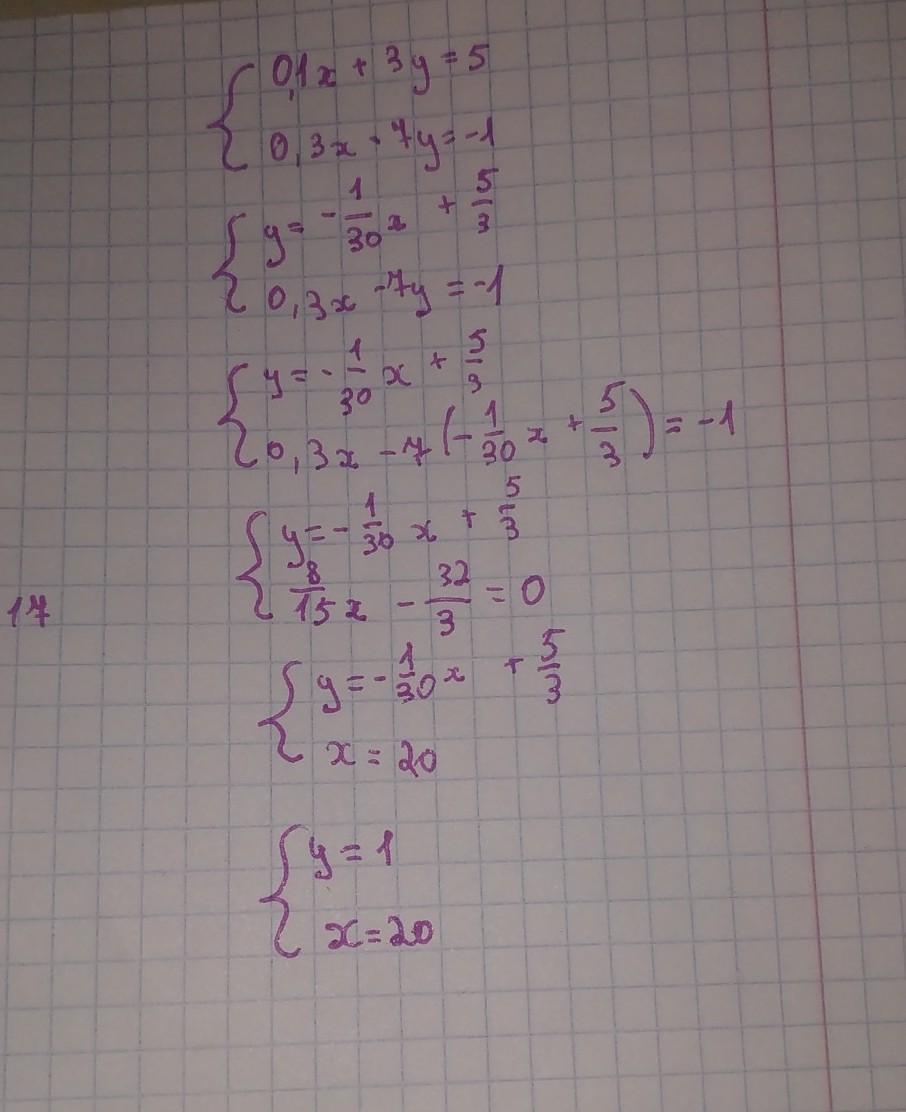 0,1x + 3y = 5
0,3x - 7y = -1
y = -1/30x + 5/3
0,3x - 7y = -1
y = -1/30x + 5/3
0,3x - 7(-1/30x + 5/3) = -1
y = -1/30x + 5/3
17
8/15x - 32/3 = 0
y = -1/30x + 5/3
x = 20
y = 1
x = 20